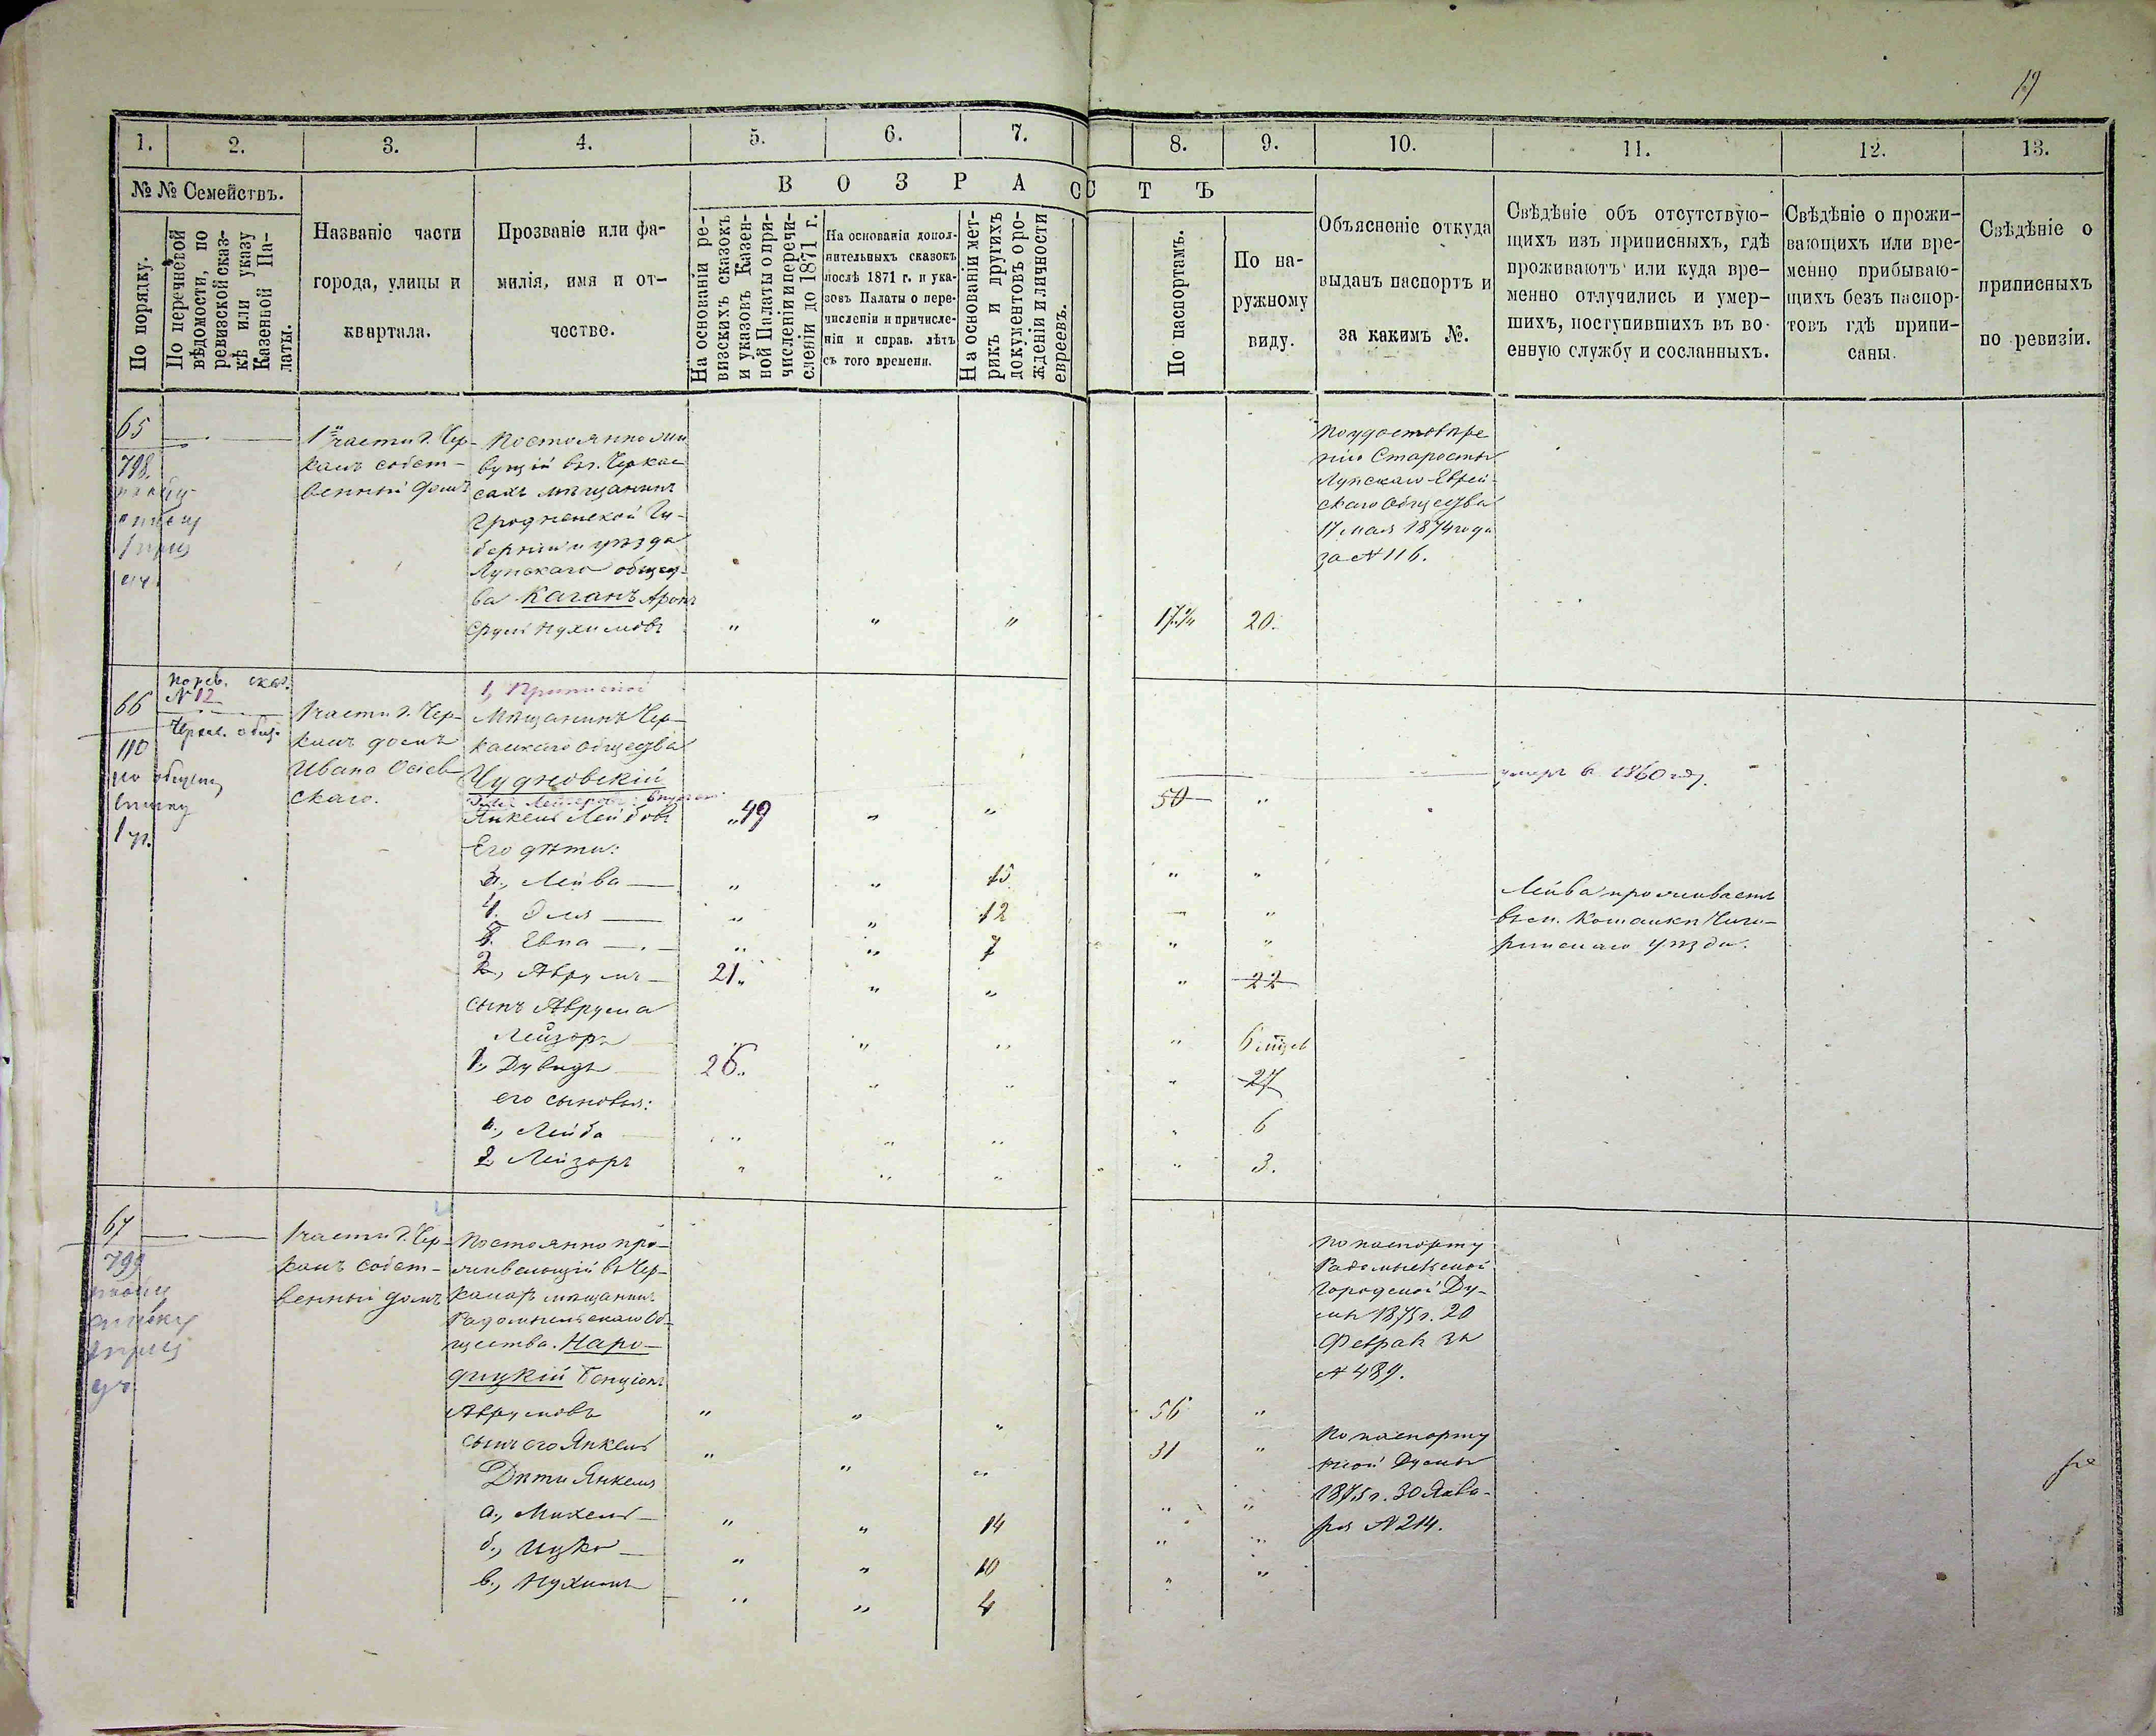 19
1. 2. 3. 4. 5. 6. 7. 8. 9. 10. 11. 12. 13.
№ № Семействъ.
По порядку.
По перечневой
вѣдомости, по
ревизской сказ-
кѣ или указу
Казенной Па-
латы.
Названіе части
города, улицы и
квартала.
Прозваніе или фа-
милія, имя и от-
чество.
ВОЗРАСТЪ
На основаніи ре-
визскихъ сказокъ
и указовъ Казен-
ной Палаты о при-
численіи и перечи-
сленіи до 1871 г.
На основаніи допол-
нительныхъ сказокъ
послѣ 1871 г. и ука-
зовъ Палаты о пере-
численіи и причисле-
ніи и справ. лѣтъ
съ того времени.
На основаніи мет-
рикъ и другихъ
документовъ о ро-
жденіи и личности
евреевъ.
По паспортамъ.
По на-
ружному
виду.
Объясненіе откуда
выданъ паспортъ и
за какимъ №.
Свѣдѣніе объ отсутствую-
щихъ изъ приписныхъ, гдѣ
проживаютъ или куда вре-
менно отлучились и умер-
шихъ, поступившихъ въ во-
енную службу и сосланныхъ.
Свѣдѣніе о прожи-
вающихъ или вре-
менно прибываю-
щихъ безъ паспор-
товъ гдѣ припи-
саны.
Свѣдѣніе о
приписныхъ
по ревизіи.
65
798.
части г. Чер-
касъ собст-
венный домъ
Постоянно жи
вущій въ г. Черкас
сахъ мѣщанинъ
Гродненской Гу-
берніи и уѣзда
Лунскаго общес-
ва Каганъ Аронъ
Сруль Нухимовъ " " " 20.
По удостовѣре
нію Старосты
Лунскаго Еврей-
скаго Общества
17 мая 1874 года
за № 116.
66
110
по общему
1 уч.
По рев. сказ.
№ 12
Черкас. общ.
1 части г. Чер-
касъ домъ
Ивана Осіев-
скаго.
1, Приписной
Мѣщанинъ Чер-
каскаго общества
Чудновскій
умеръ въ 1860 году.
Янкель Лейбовъ " 49 " " 50 "
Его дѣти:
3., Лейба — " " 15 " "
4. Эля — " " 12 — "
5. Евна — " " 7 " "
2, Аврумъ — 21 " " " " 22
сынъ Аврума
Лейзоръ " " " " 6 мѣсяц
1., Дувидъ 26 " " " 27
его сыновья:
1., Лейба " " " " 6
2 Лейзоръ " " " " 3.
Лейба проживаетъ
въ м. Чиги-
ринскаго уѣзда.
67
799
1 части г. Чер-
касъ собст-
венный домъ
Постоянно про-
живающій въ Чер-
касахъ мѣщанинъ
Радомысльскаго Об-
щества. Наро-
дицкій Бенціонъ
Аврумовъ " " " 56 "
сынъ его Янкель " " " 31 "
Дѣти Янкеля
а., Михель — " " 14 " "
б., Ицко — " " 10 " "
в., Нухимъ " " 4 " "
По паспорту
Радомысльской
Городской Ду-
мы 1875 г. 20
Феврал за
№ 489.
По паспорту
той Думы
1875 г. 30 Янва-
ря № 214.